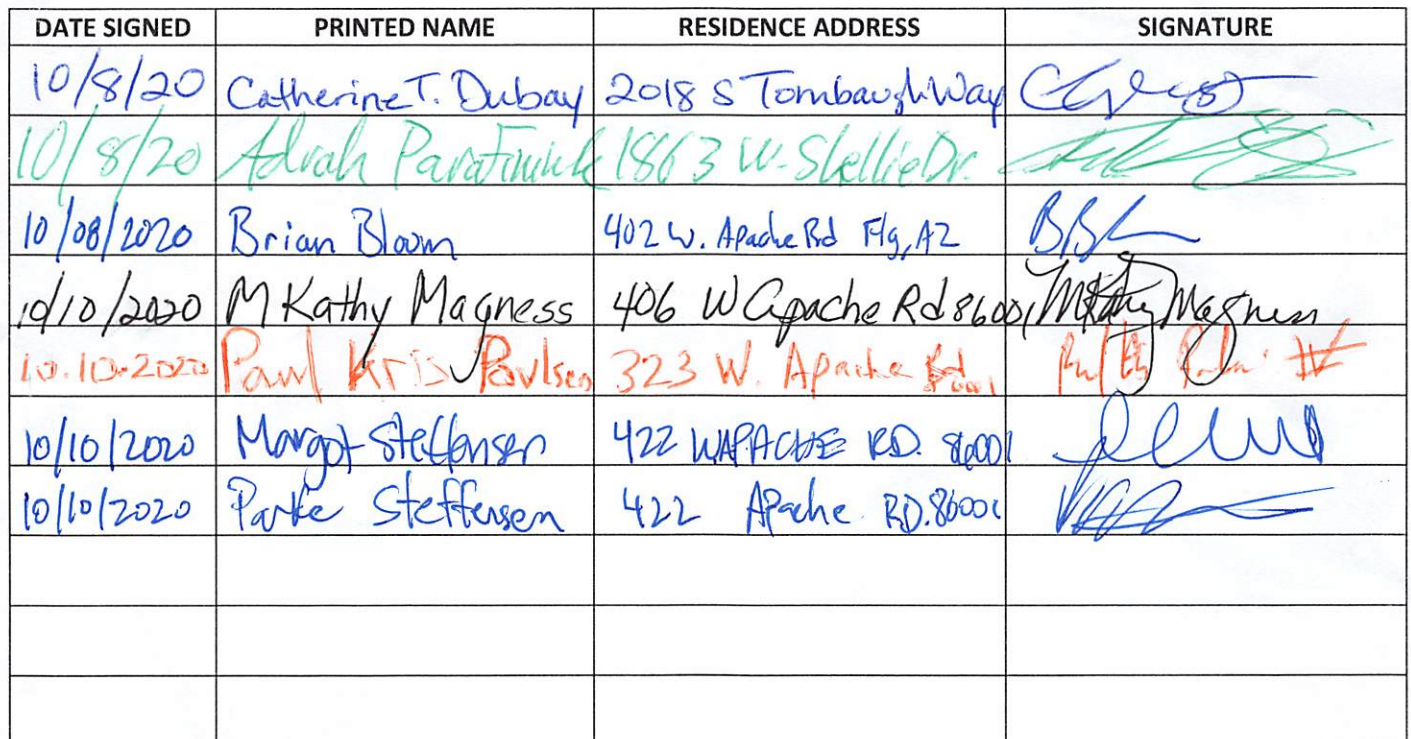 DATE SIGNED PRINTED NAME RESIDENCE ADDRESS SIGNATURE
10/8/20 Catherine T. Dubay 2018 S Tombaugh Way
10/8/20 1863 W. Skellie Dr.
10/08/2020 Brian Bloom 402 W. Apache Rd Flg, AZ
10/10/2020 M Kathy Magness 406 W Apache Rd 86001 MKathy Magness
10.10.2020 Paul Kris Paulsen 323 W. Apache Rd
10/10/2020 Margot Steffensen 422 W APACHE RD. 86001
10/10/2020 Parke Steffensen 422 Apache RD. 86001